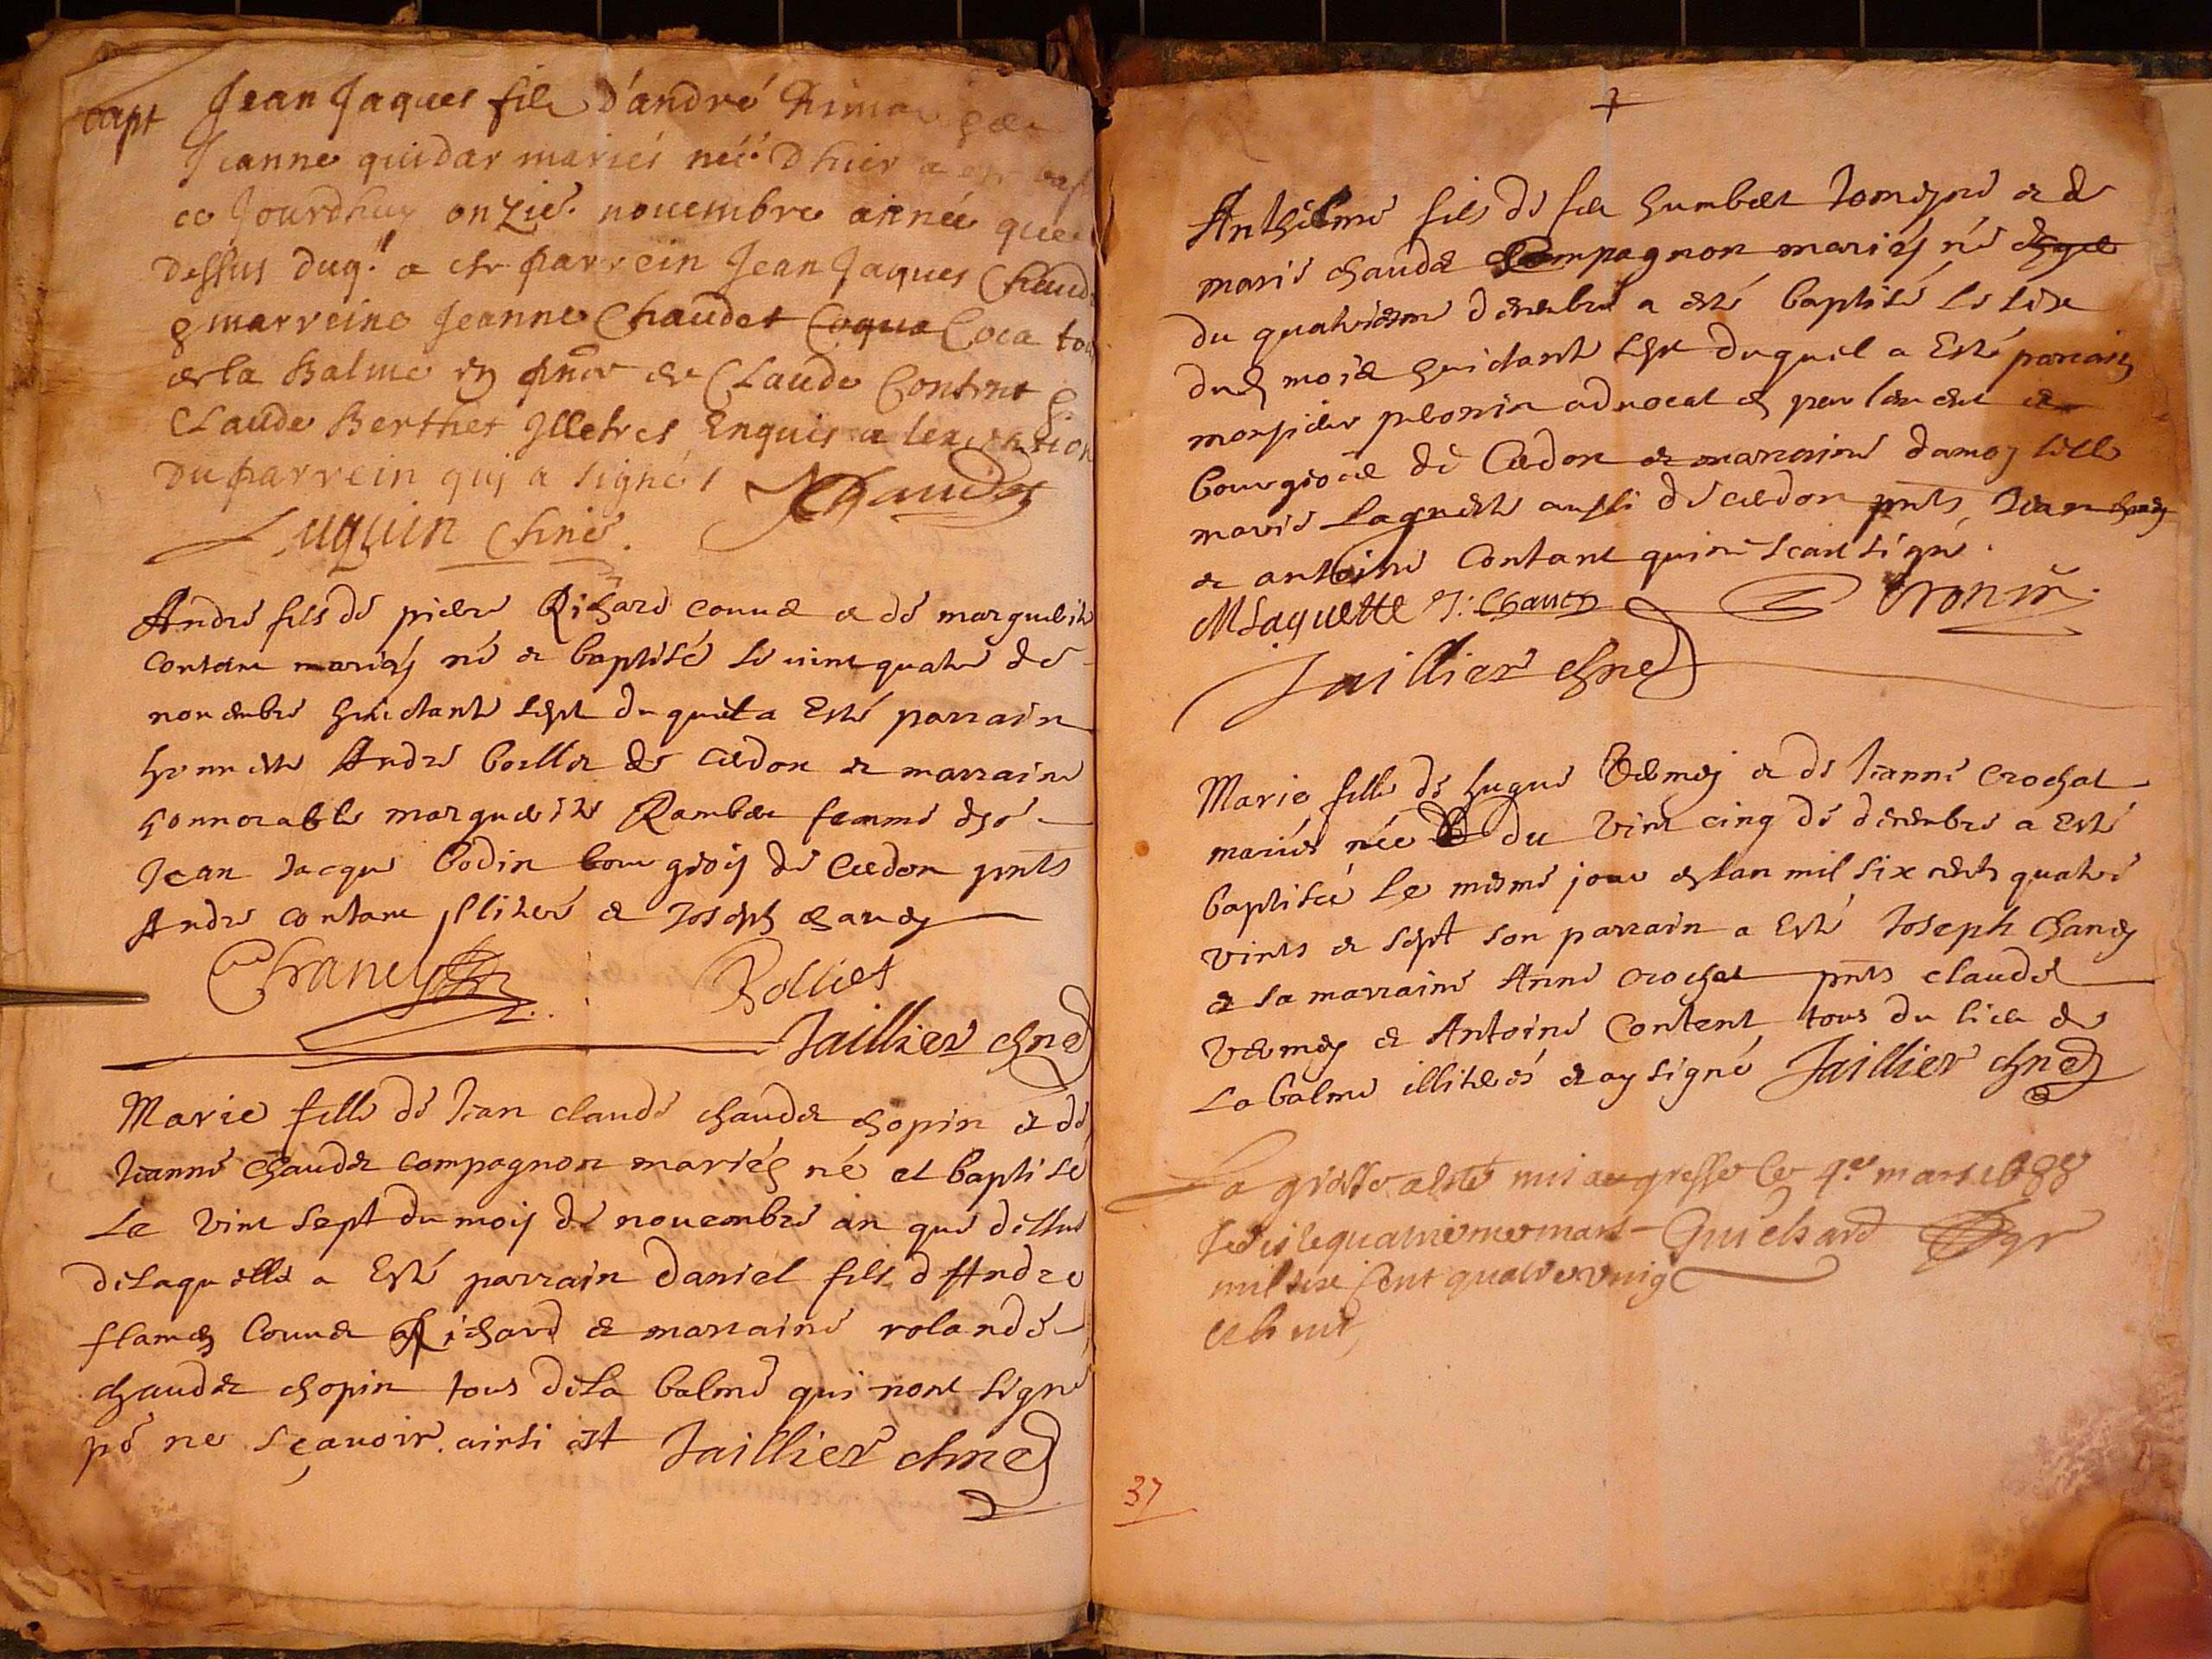 capt Jean Jaques fils d'andré
Jeanne quidar mariés néé d hier a
ce Jourdhuy onzie. novembre année que
dessus duq.l a este parrein Jean Jaques Chaud
& marreine Jeanne Chaudet Coqua Coca
de la Balme en de Claude Content &
Claude Berthet Illetres Enquis a lexception
Du parrein qui a signés
JChaudet
Luquin
André fils de pierre Richard connet et de marguerite
contant mariés né et baptisé le vint quatre de
novembre huictante sept duquel a Esté parrain
honneste André bollet de cerdon et marraine
honnorable marguerite Rambert femme de
Jean Jacque bodin bourgeois de cerdon pnts
André contant illiteré et Joseph
Bolliet
Jaillier
Marie fille de Jean claude chaudet chopin et de
Jeanne chaudet compagnon mariés né et baptisé
Le vint sept du mois de novembre an que dessus
delaquelle a Esté parrain daniel fils d Andre
connet Richard et marraine rolande
chaudet chopin tous dela balme qui nont signé
po ne sçavoir. ainsi est Jaillier
Anthelme fils de feu humbert et de
marie chaudet Compagnon mariés né
du quatriesme decembre a esté baptisé le
dud mois huictante sept duquel a Esté parrain
monsieur advocat en parlement et
bourgeois de Cerdon et marraine damoiselle
marie Laguette aussi de cerdon pnts Jean
et antoine Contant qui ne scait signé.
MLaguette
Jaillier
Marie fille de hugue et de Jeanne crochat
mariés née du vint cinq de decembre a Esté
baptisée Le mesme jour et lan mil six cents quatre
vints et sept son parrain a Esté Joseph
et sa marraine Anne crochet pnts claude
et Antoine Content tous du lieu de
La balme illiterés et ay signé Jaillier
La grosse a esté mis au greffe le 4e mars 1688
le quatriesme mars Guichard
mil six Cent quatre vingt
et huit
37